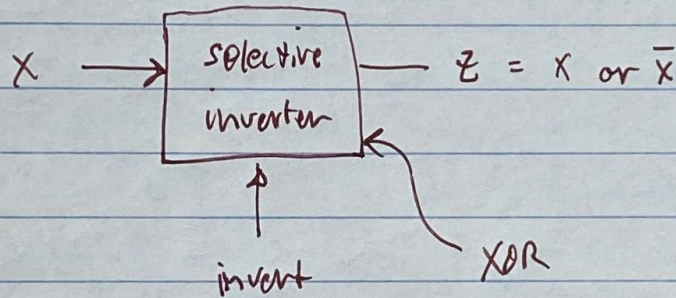 X
selective
inverter
Z = X or X̄
invert
XOR